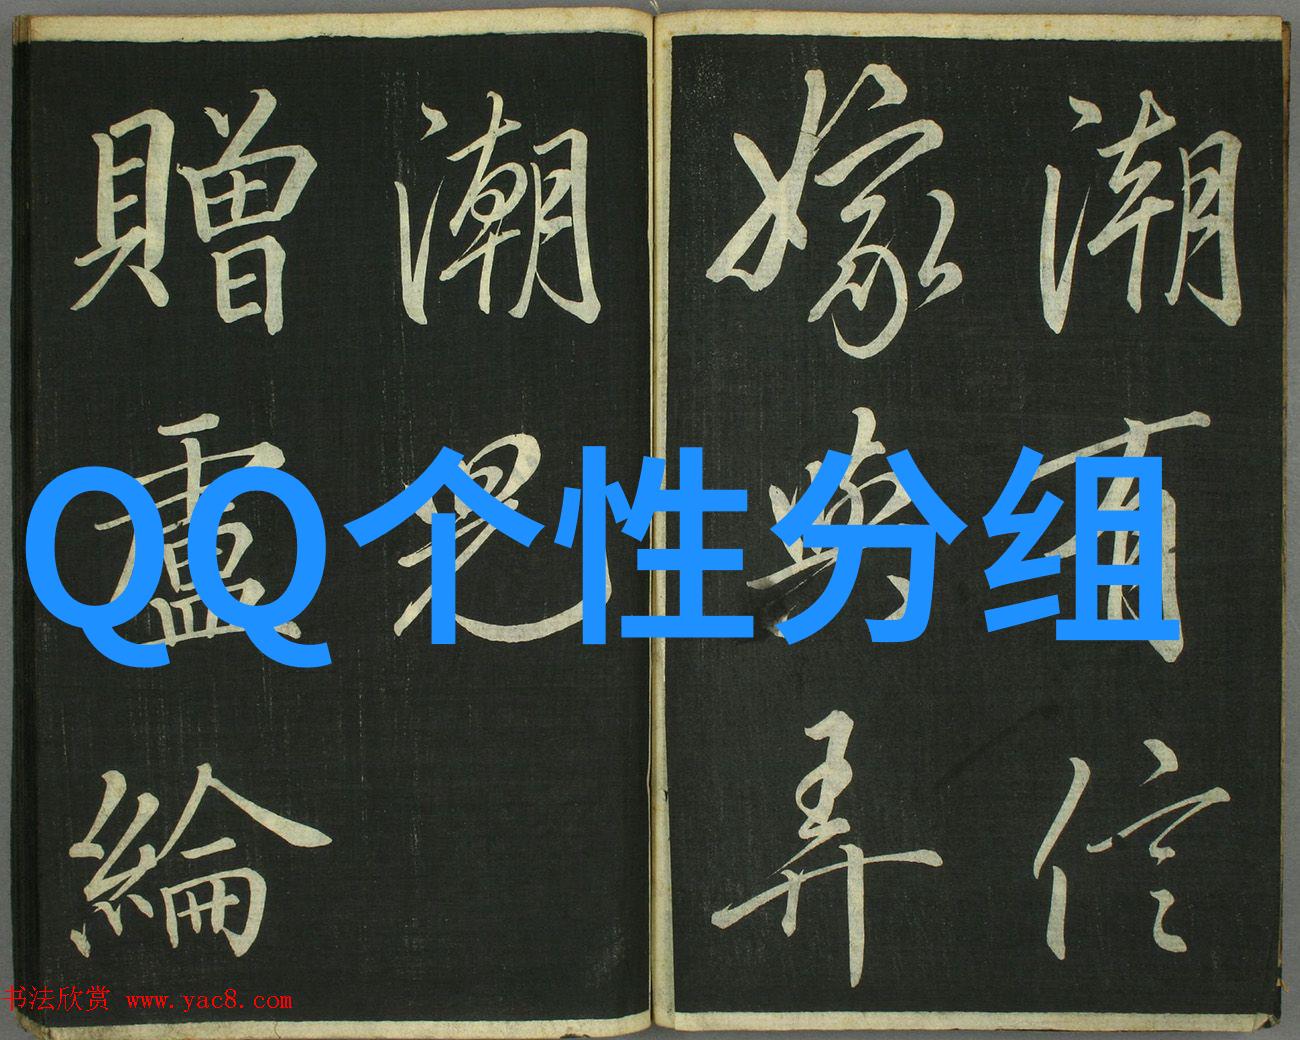 潮有信
嫁與弄
潮兒
贈盧綸
QQ个性分组
书法欣赏 www.yac8.com